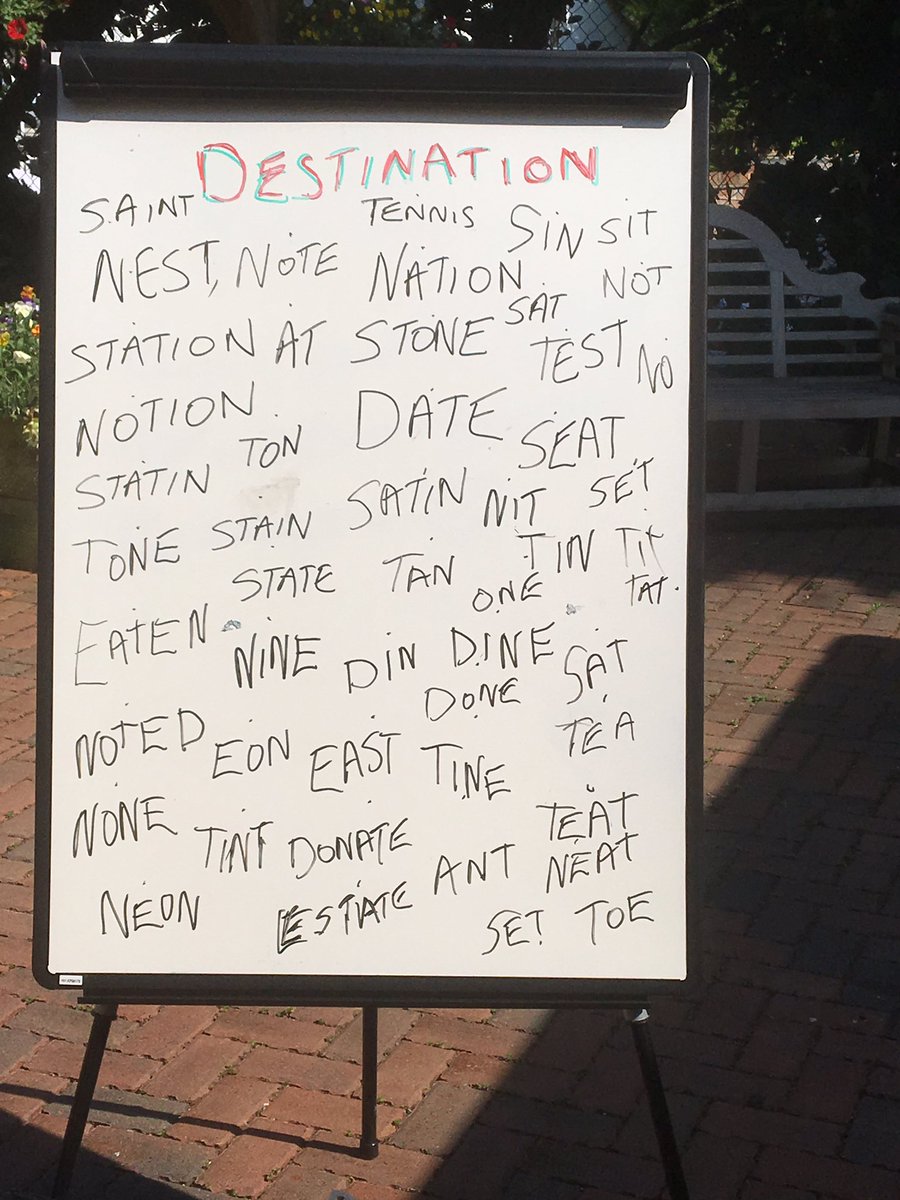 DESTINATION
SAINT TENNIS SIN SIT
NEST, NOTE NATION NOT
STATION AT STONE SAT TEST NO
NOTION DATE
STATIN TON SEAT
TONE STAIN SATIN NIT SET
STATE TAN TIN TIT
EATEN ONE TAT.
NINE DIN DINE SAT
NOTED EON DONE TEA
EAST TINE
NONE TINT DONATE TEAT
NEON ESTATE ANT NEAT
SET TOE